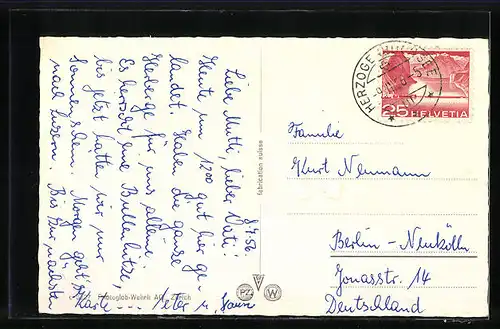 8.7.56.
Liebe Mutti, lieber Vati!
Heute um 12⁰⁰ gut hier ge-
landet. Haben die ganze
Herberge für uns alleine.
Es herrscht eine Bullenhitze,
bis jetzt hatten wir nur
Sonnenschein. Morgen geht's
nach Luzern. Bis zur nächsten
Karte --- Peter u.
Photoglob-Wehrli AG, Zürich
fabrication suisse
PZ
W
HERZOGE SEE
25 HELVETIA
Familie
Kurt Neumann
Berlin-Neukölln
Jonasstr. 14
Deutschland